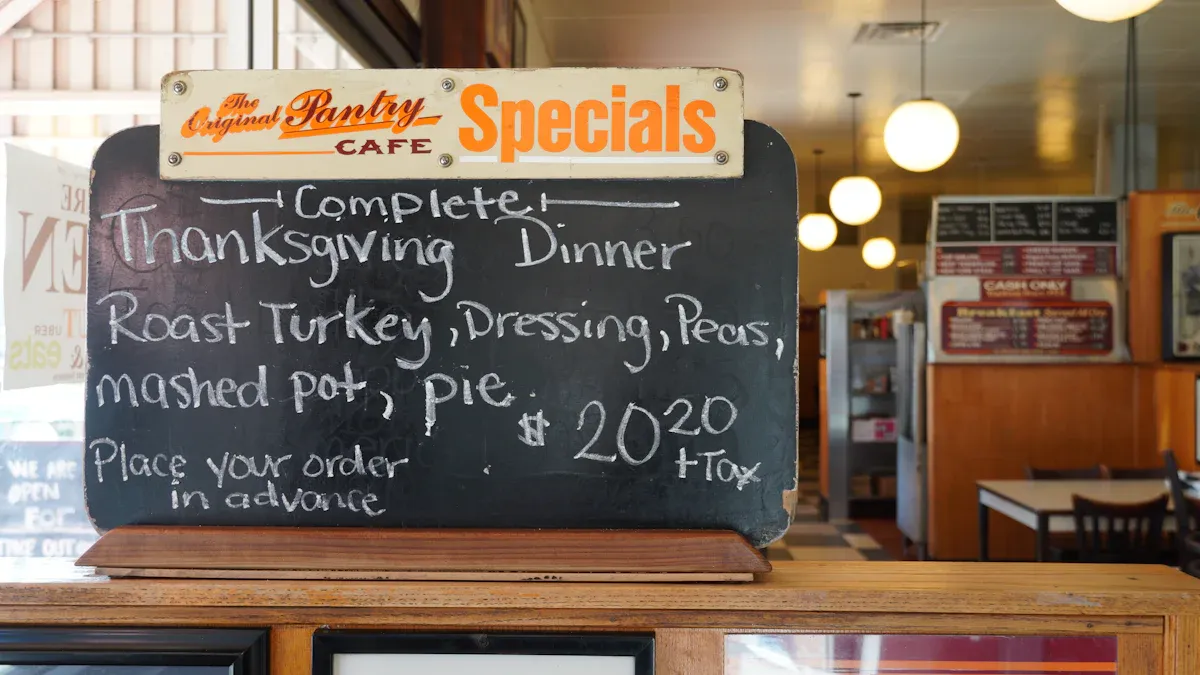 The
Original Pantry
CAFE
Specials
Complete
Thanksgiving Dinner
Roast Turkey, Dressing, Peas,
mashed pot, pie
$20 20
+Tax
Place your order
in advance
WE ARE
OPEN
FOR
TAKE OUT
UBER
eats
CASH ONLY
Breakfast Served All Day